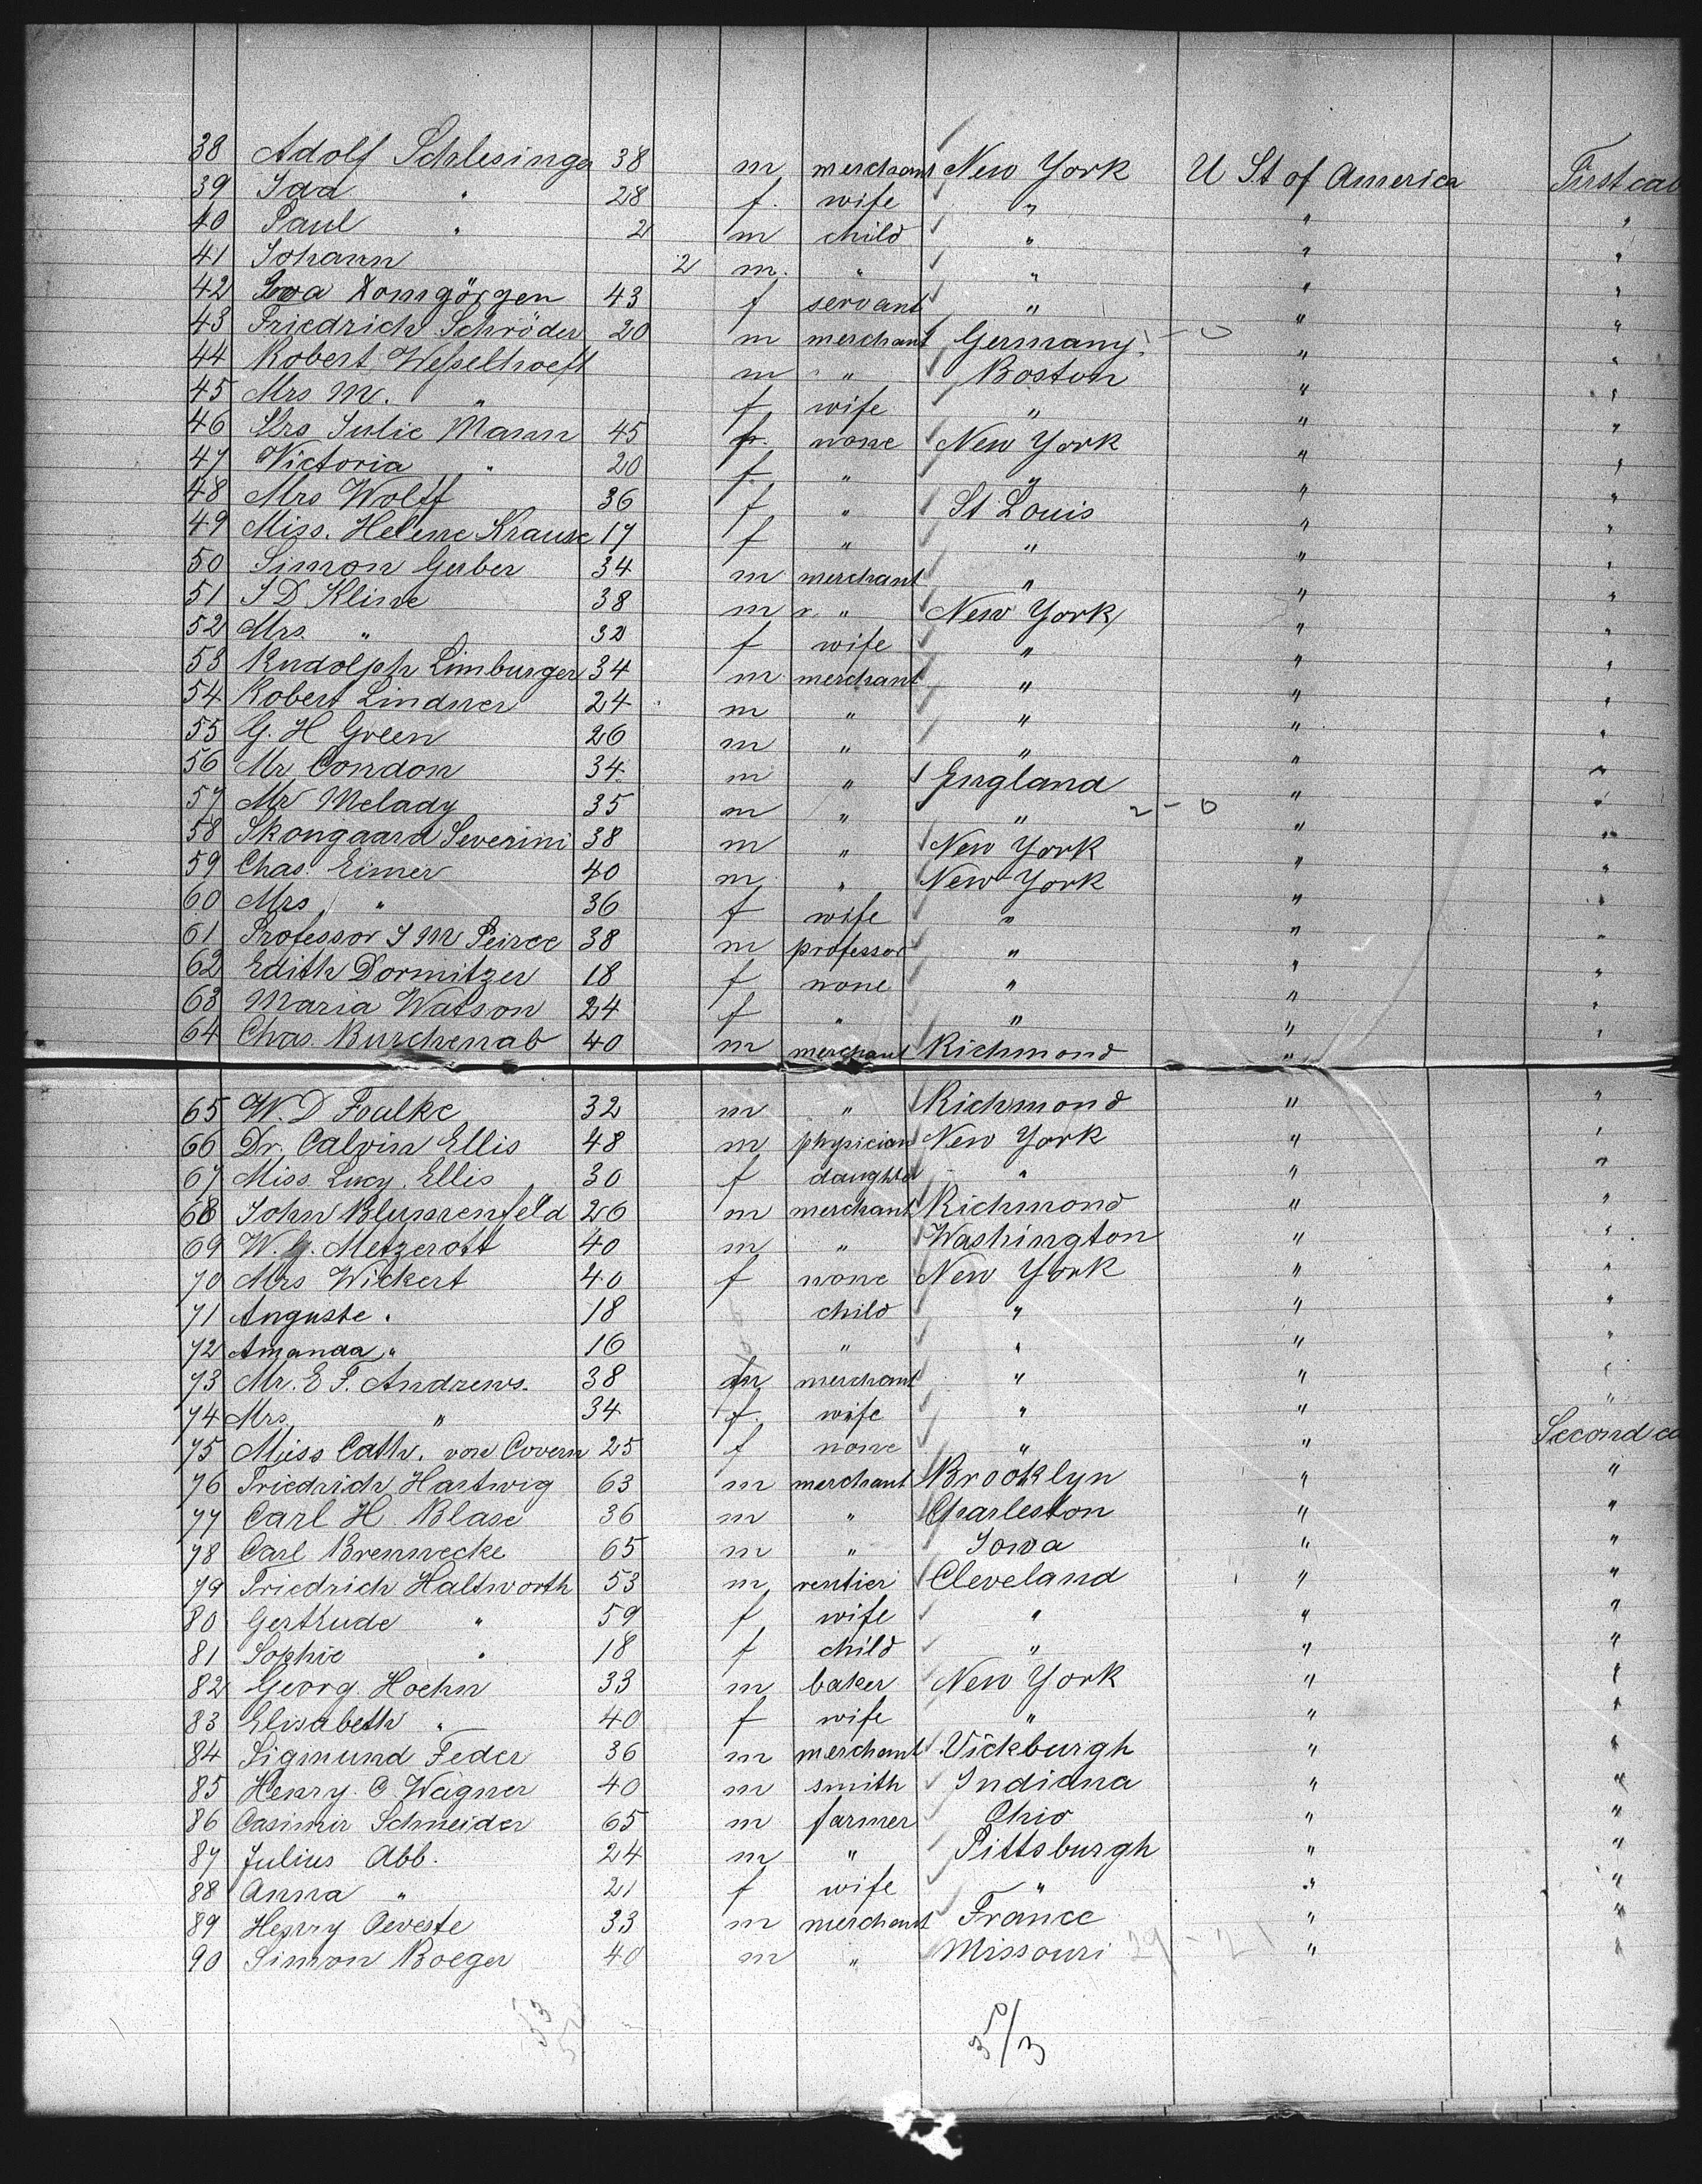 38 Adolf Schlesinger 38 m merchant New York U St of America First cab
39 Ida " 28 f. wife " " "
40 Paul " 2 m child " " "
41 Johann 2 m. " " " "
42 Eva Domgörgen 43 f servant " " "
43 Friedrich Schröder 20 m merchant Germany 1 - 0 " "
44 Robert Wesselhoeft m " Boston " "
45 Mrs M. " f wife " " "
46 Mrs Julie Mann 45 f. none New York " "
47 Victoria " 20 f. " " " "
48 Mrs Wolff 36 f " St Louis " "
49 Miss. Helene Krause 17 f " " " "
50 Simon Gerber 34 m merchant " " "
51 J D Kline 38 m " New York " "
52 Mrs. " 32 f wife " " "
53 Rudolph Limburger 34 m merchant " " "
54 Robert Lindner 24 m " " " "
55 G. H Green 26 m " " " "
56 Mr Condon 34 m " England " "
57 Mr Melady 35 m " " 2 - 0 " "
58 Skongaard Severini 38 m " New York " "
59 Chas. Eimer 40 m " New York " "
60 Mrs " 36 f wife " " "
61 Professor J M Peirce 38 m professor " " "
62 Edith Dormitzer 18 f none " " "
63 Maria Watson 24 f " " " "
64 Chas. Burchenab 40 m merchant Richmond " "
65 W. D Foulke 32 m " Richmond " "
66 Dr. Calvin Ellis 48 m physician New York " "
67 Miss. Lucy. Ellis 30 f daughter " " "
68 John Blumenfeld 26 m merchant Richmond " "
69 W. G. Metzerott 40 m " Washington " "
70 Mrs Wickert 40 f none New York " "
71 Auguste " 18 child " " "
72 Amanda " 16 " " " "
73 Mr. E F. Andrews. 38 m merchant " " "
74 Mrs " 34 f. wife " " "
75 Miss Cath. von Covern 25 f none " " Second ca
76 Friedrich Hartwig 63 m merchant Brooklyn " "
77 Carl H. Blase 36 m " Charleston " "
78 Carl Brennecke 65 m " Iowa " "
79 Friedrich Haltworth 53 m rentier Cleveland " "
80 Gertrude " 59 f wife " " "
81 Sophie " 18 f child " " "
82 Georg Hoehn 33 m baker New York " "
83 Elisabeth " 40 f wife " " "
84 Sigmund Feder 36 m merchant Vickburgh " "
85 Henry. C Wagner 40 m smith Indiana " "
86 Casimir Schneider 65 m farmer Ohio " "
87 Julius Abb. 24 m " Pittsburgh " "
88 Anna " 21 f wife " " "
89 Henry Oeveste 33 m merchant France " "
90 Simon Boeger 40 m " Missouri 29 - 21 " "
53